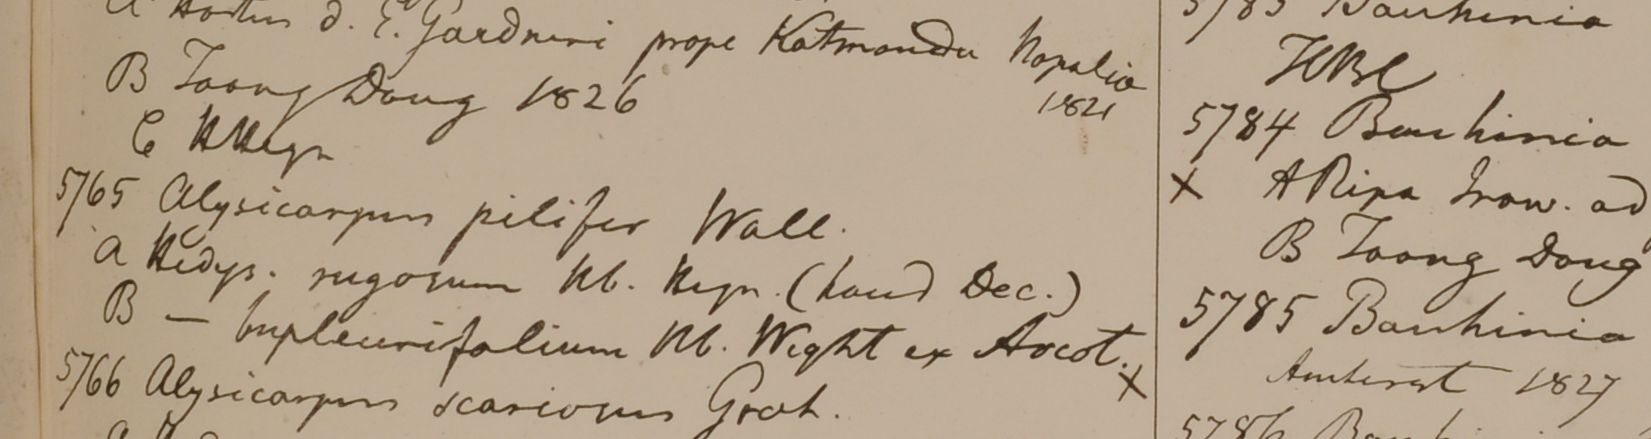 A Hortus D. E. Gardneri prope Katmandu Napalia
1821
B Toong Doug 1826
C HHeyn
5765 Alysicarpus pilifer Wall.
A Hedys. rugosum Hb. Heyn. (haud Dec.)
B — bupleurifolium Hb. Wight ex Arcot.
5766 Alysicarpus scariosus Grah.
5783 Bauhinia
HBC
5784 Bauhinia
x A Ripa Iraw. ad
B Toong Doug
5785 Bauhinia
x Amherst 1827
5786